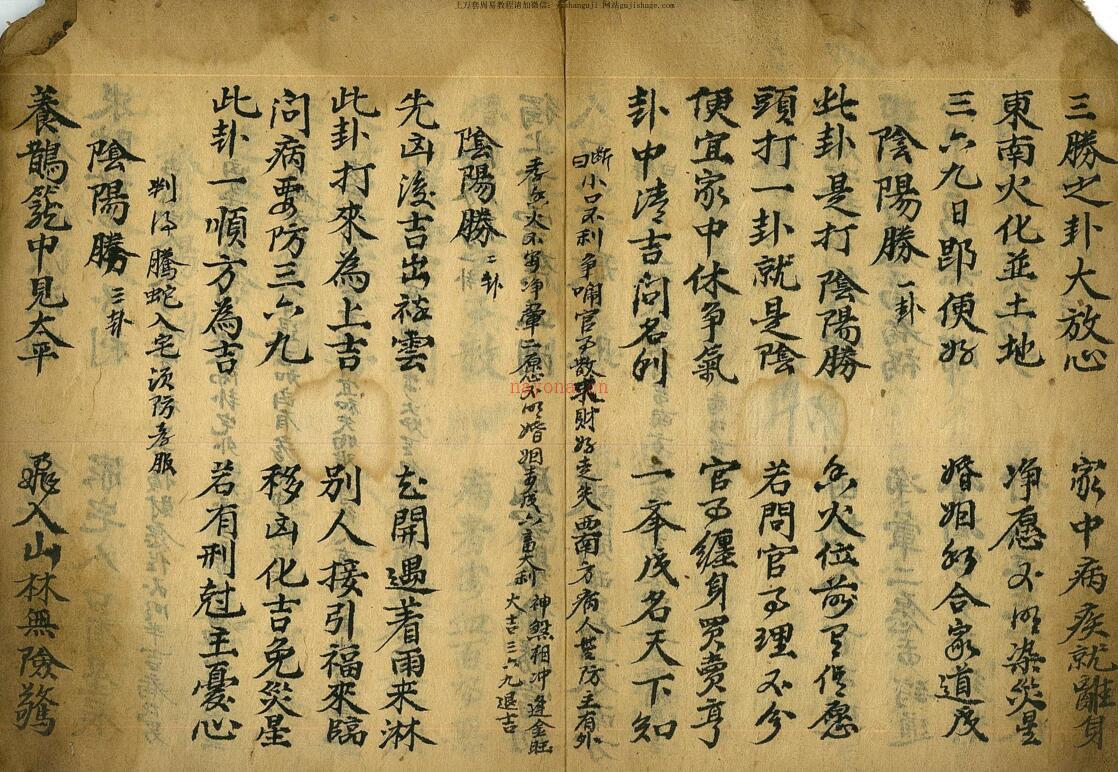 上万套周易教程请加微信：yishanguji 网站gujishuge.com
三勝之卦大放心 家中病疾就離身
東南火化並土地 净愿不明染災星
三六九日即便好 婚姻好合家道成
陰陽勝 一卦
此卦是打陰陽勝 香火位前有但愿
頭打一卦就是陰 若問官司理不分
便宜家中休争氣 官司纏身買賣亨
卦中清吉問名列 一夲成名天下知
断曰小口不利争鬧官司散求財好走失西南方病人防主有外
香火不寧净葷二愿不明婚姻成六畜大利 神煞相冲逢金旺 大吉三六九退吉
陰陽勝 二卦
先凶後吉出祥雲 花開遇着雨来淋
此卦打來為上吉 別人接引福來臨
問病要防三六九 移凶化吉免災星
此卦一順方為吉 若有刑尅主憂心
判曰騰蛇入宅須防孝服
陰陽勝 三卦
養鵲籠中見太平 飛入山林無險驚
nayona.cn